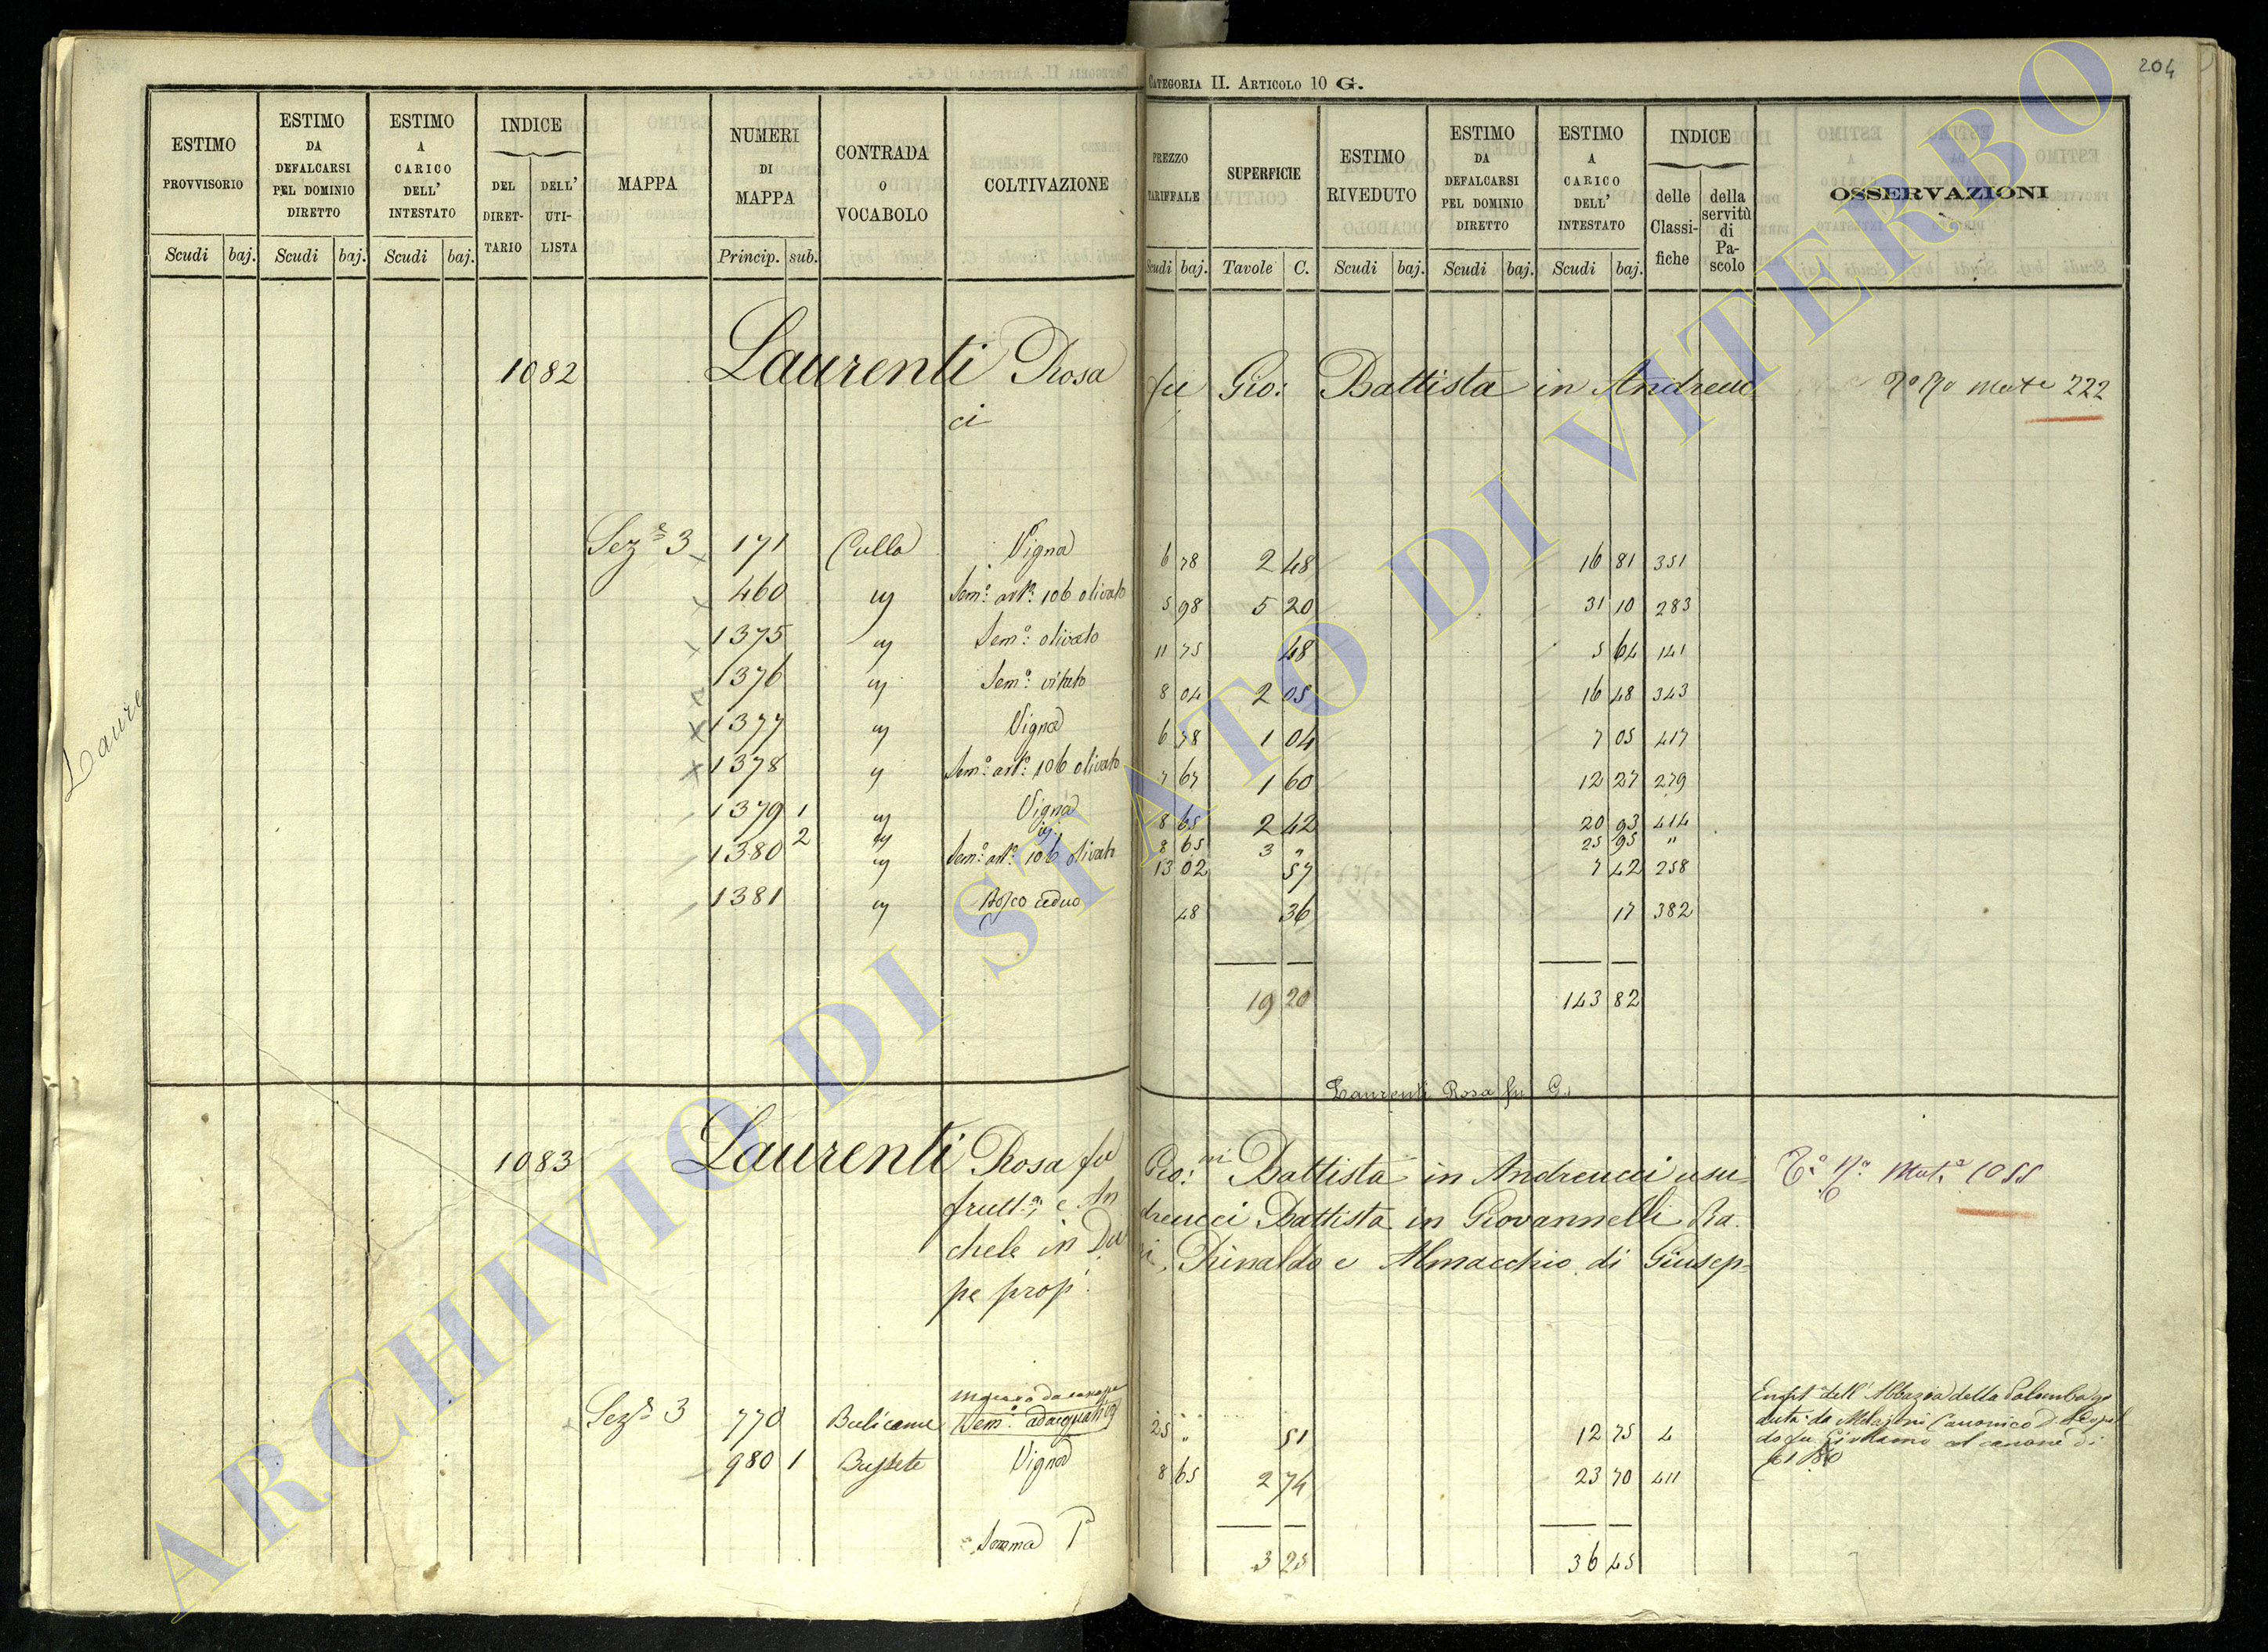 204
CATEGORIA II. ARTICOLO 10 G.
ESTIMO PROVVISORIO | ESTIMO DA DEFALCARSI PEL DOMINIO DIRETTO | ESTIMO A CARICO DELL' INTESTATO | INDICE | MAPPA | NUMERI DI MAPPA | CONTRADA O VOCABOLO | COLTIVAZIONE | PREZZO TARIFFALE | SUPERFICIE | ESTIMO RIVEDUTO | ESTIMO DA DEFALCARSI PEL DOMINIO DIRETTO | ESTIMO A CARICO DELL' INTESTATO | INDICE | OSSERVAZIONI
DEL DIRETTARIO | DELL' UTILISTA | delle Classifiche | della servitù di Pascolo
Scudi baj. Scudi baj. Scudi baj. Princip. sub. Scudi baj. Tavole C. Scudi baj. Scudi baj. Scudi baj.
1082 Laurenti Rosa fu Gio: Battista in Andreuc 222
ci
Sez.e 3 171 Colla Vigna 6 78 2 48 16 81 351
460 " Sem.o art.o 106 olivato 5 98 5 20 31 10 283
1375 " Sem.o olivato 11 75 48 5 64 141
1376 " Sem.o vitato 8 04 2 05 16 48 343
1377 " Vigna 6 78 1 04 7 05 417
1378 " Sem.o art.o 106 olivato 7 67 1 60 12 27 279
1379 1 " Vigna 8 65 2 42 20 93 414
2 " " 8 65 3 " 25 95 "
1380 " Sem.o art.o 106 olivato 13 02 57 7 42 258
1381 " Bosco ceduo 48 36 17 382
19 20 143 82
Laure
Laurenti Rosa fu G.
1083 Laurenti Rosa fu Gio: Battista in Andreucci usu=
frutt.a e Andreucci Battista in Giovannelli Ra
chele in Du Rinaldo e Almacchio di Giusep=
pe prop.
1055
Sez.e 3 770 Bulicame Sem.o adacquativo 25 " 51 12 75 4
dell' Abbazia della Palomba
Canonico
al canone di
980 1 Bussete Vigna 8 65 2 74 23 70 411
Somma 3 25 36 45
ARCHIVIO DI STATO DI VITERBO